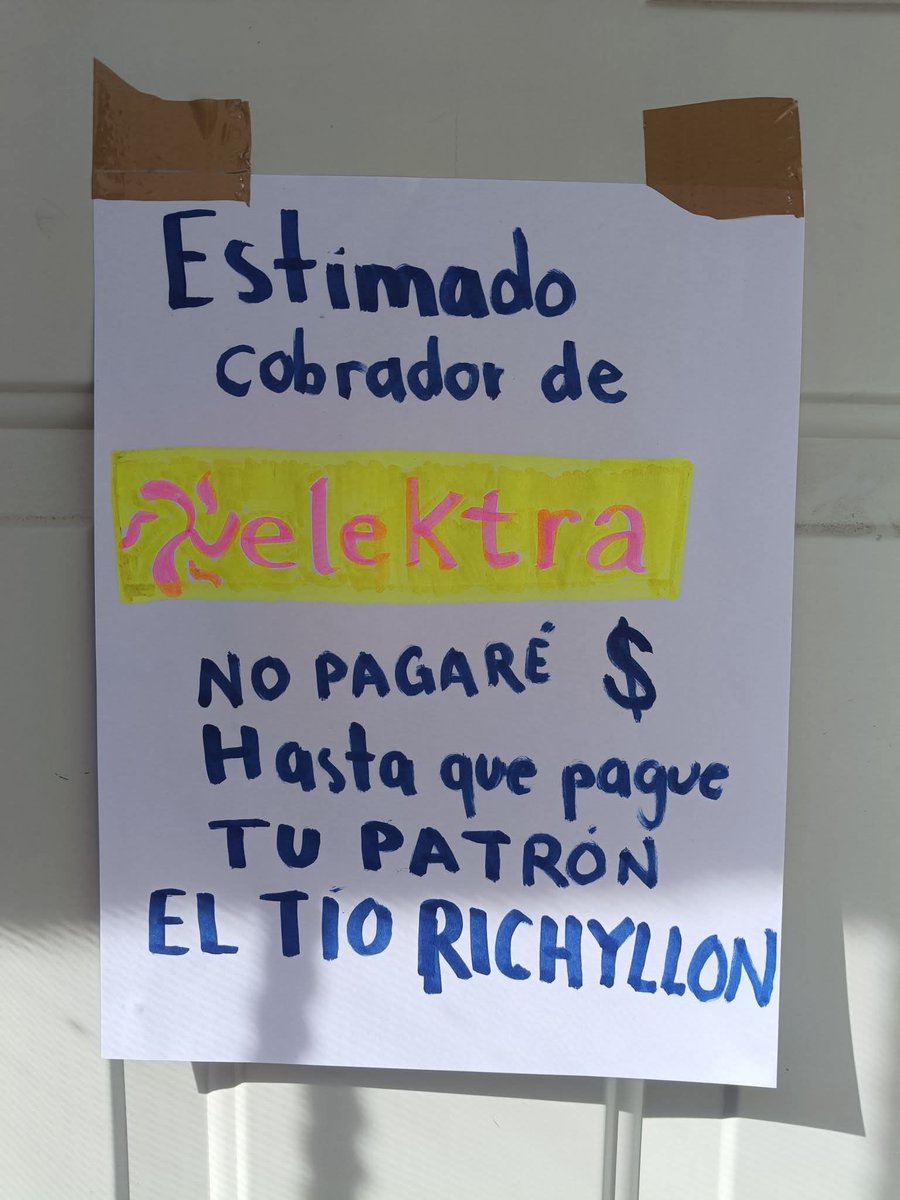 Estimado
cobrador de
elektra
NO PAGARÉ $
Hasta que pague
TU PATRÓN
EL TÍO RICHYLLON